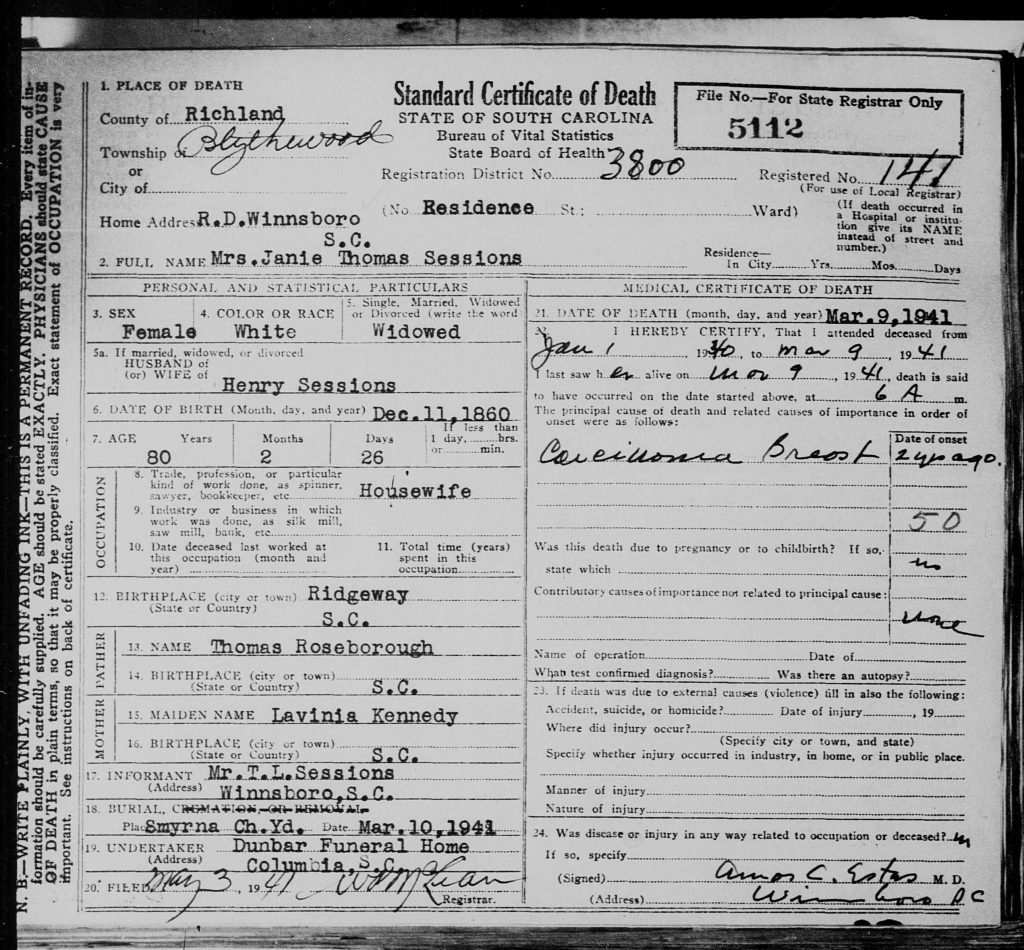 N. B.—WRITE PLAINLY, WITH UNFADING INK—THIS IS A PERMANENT RECORD. Every item of in-
formation should be carefully supplied. AGE should be stated EXACTLY. PHYSICIANS should state CAUSE
OF DEATH in plain terms, so that it may be properly classified. Exact statement of OCCUPATION is very
important. See instructions on back of certificate.
1. PLACE OF DEATH
County of Richland
Township of Blythewood
or
City of
Home Address R.D.Winnsboro
S.C.
Standard Certificate of Death
STATE OF SOUTH CAROLINA
Bureau of Vital Statistics
State Board of Health
Registration District No. 3800
(No. Residence St; Ward)
File No.—For State Registrar Only
5112
Registered No. 141
(For use of Local Registrar)
(If death occurred in
a Hospital or institu-
tion give its NAME
instead of street and
number.)
2. FULL NAME Mrs.Janie Thomas Sessions
Residence—
In City Yrs. Mos. Days
PERSONAL AND STATISTICAL PARTICULARS
3. SEX
Female
4. COLOR OR RACE
White
5. Single, Married, Widowed
or Divorced (write the word)
Widowed
5a. If married, widowed, or divorced
HUSBAND of
(or) WIFE of
Henry Sessions
6. DATE OF BIRTH (Month, day, and year) Dec.11,1860
7. AGE Years Months Days If less than
1 day, hrs.
or min.
80 2 26
OCCUPATION
8. Trade, profession, or particular
kind of work done, as spinner,
sawyer, bookkeeper, etc. Housewife
9. Industry or business in which
work was done, as silk mill,
saw mill, bank, etc.
10. Date deceased last worked at
this occupation (month and
year)
11. Total time (years)
spent in this
occupation
12. BIRTHPLACE (city or town) Ridgeway
(State or Country)
S.C.
FATHER
13. NAME Thomas Roseborough
14. BIRTHPLACE (city or town)
(State or Country) S.C.
MOTHER
15. MAIDEN NAME Lavinia Kennedy
16. BIRTHPLACE (city or town)
(State or Country) S.C.
17. INFORMANT Mr.T.L.Sessions
(Address) Winnsboro,S.C.
18. BURIAL, CREMATION, OR REMOVAL
Place Smyrna Ch.Yd. Date Mar.10,1941
19. UNDERTAKER Dunbar Funeral Home
(Address) Columbia,S.C.
20. FILED May 3, 1941 McLean
Registrar.
MEDICAL CERTIFICATE OF DEATH
21. DATE OF DEATH (month, day, and year) Mar.9,1941
I HEREBY CERTIFY, That I attended deceased from
Jan 1 1940, to Mar 9, 1941
I last saw her alive on Mar 9, 1941, death is said
to have occurred on the date started above, at 6 A m.
The principal cause of death and related causes of importance in order of
onset were as follows:
Date of onset
Carcinoma Breast 2 yrs ago.
50
Was this death due to pregnancy or to childbirth? If so,
state which no
Contributory causes of importance not related to principal cause:
none
Name of operation Date of
What test confirmed diagnosis? Was there an autopsy?
23. If death was due to external causes (violence) fill in also the following:
Accident, suicide, or homicide? Date of injury , 19
Where did injury occur?
(Specify city or town, and state)
Specify whether injury occurred in industry, in home, or in public place.
Manner of injury
Nature of injury
24. Was disease or injury in any way related to occupation or deceased? no
If so, specify
(Signed) Amos C. Estes M. D.
(Address) Winnsboro SC